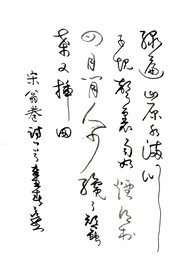 绿遍山原白满川
子规声里雨如烟乡村
四月闲人少 才了蚕
桑又插田
宋翁卷诗一首